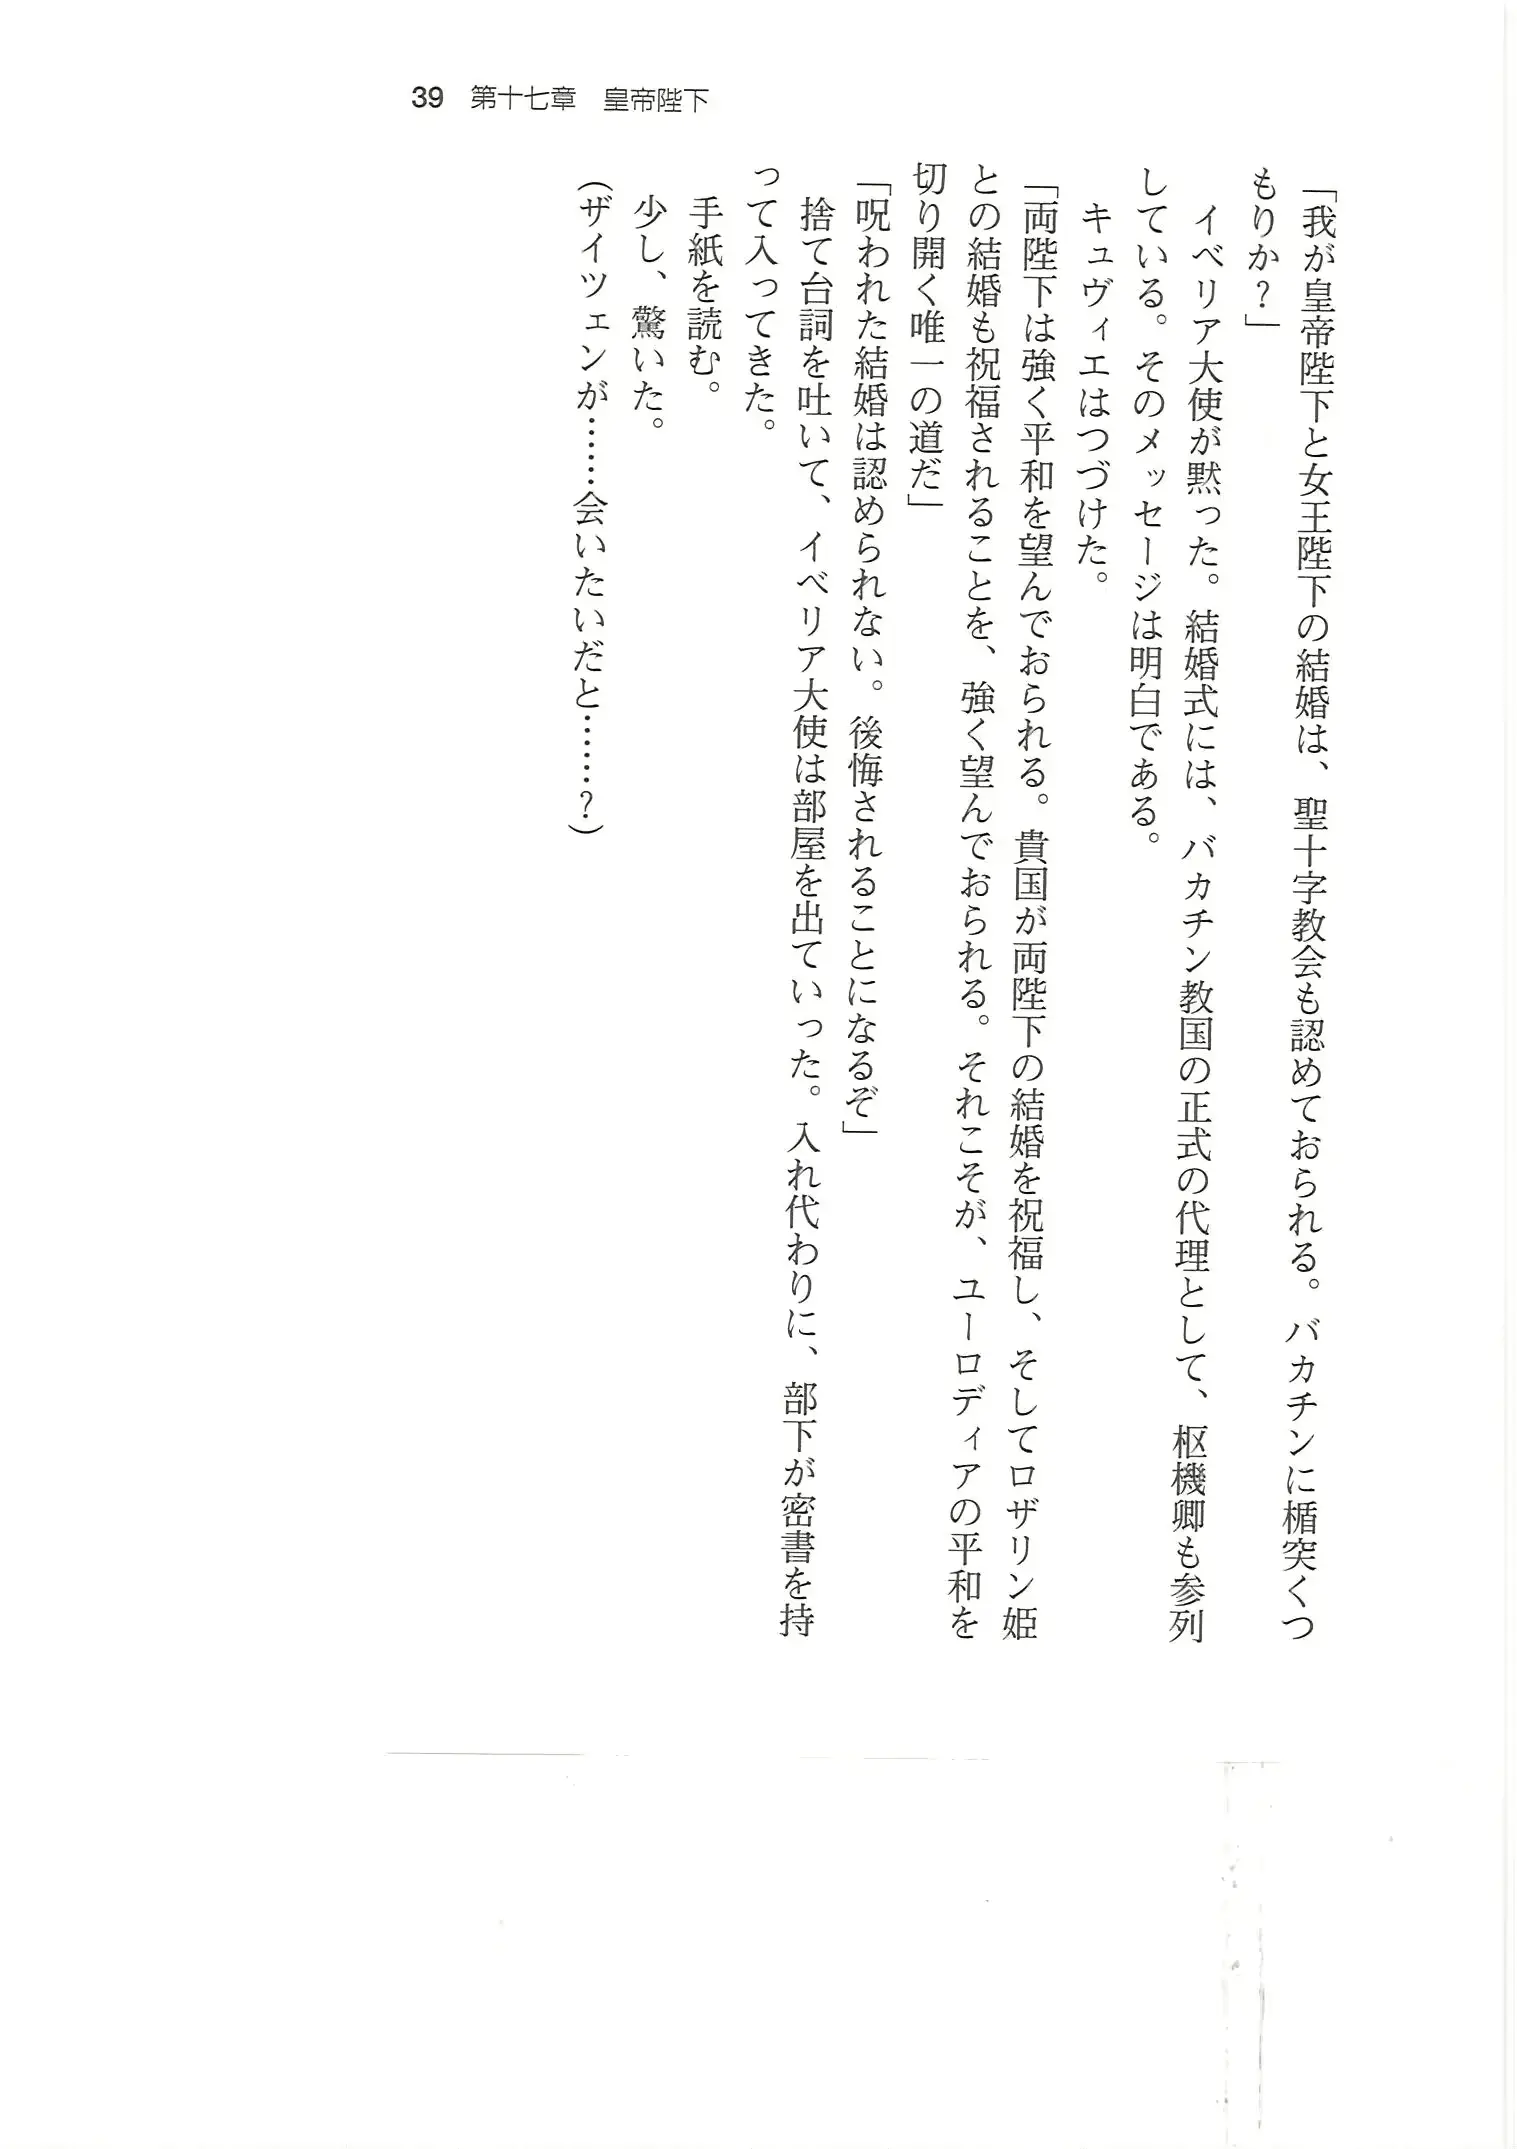 39 第十七章 皇帝陛下
「我が皇帝陛下と女王陛下の結婚は、聖十字教会も認めておられる。バカチンに楯突くつ
もりか?」
イベリア大使が黙った。結婚式には、バカチン教国の正式の代理として、枢機卿も参列
している。そのメッセージは明白である。
キュヴィエはつづけた。
「両陛下は強く平和を望んでおられる。貴国が両陛下の結婚を祝福し、そしてロザリン姫
との結婚も祝福されることを、強く望んでおられる。それこそが、ユーロディアの平和を
切り開く唯一の道だ」
「呪われた結婚は認められない。後悔されることになるぞ」
捨て台詞を吐いて、イベリア大使は部屋を出ていった。入れ代わりに、部下が密書を持
って入ってきた。
手紙を読む。
少し、驚いた。
(ザイツェンが……会いたいだと……?)